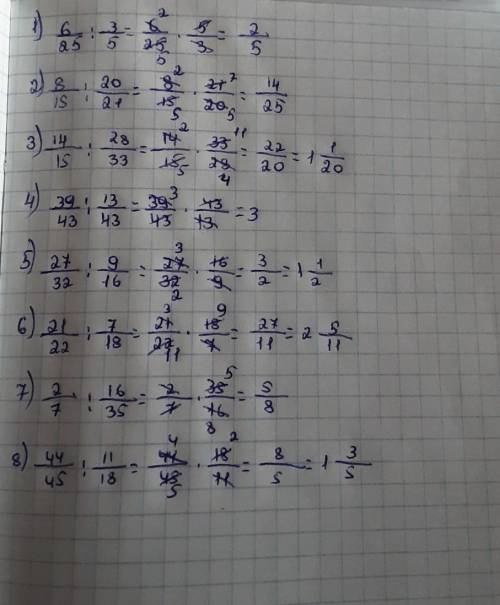 1) 6/25 : 3/5 = 6²/25₅ · 5/3 = 2/5
2) 8/15 : 20/21 = 8²/15₅ · 21⁷/20₅ = 14/25
3) 14/15 : 28/33 = 14²/15₅ · 33¹¹/28₄ = 22/20 = 1 1/20
4) 39/43 : 13/43 = 39³/43 · 43/13 = 3
5) 27/32 : 9/16 = 27³/32₂ · 16/9 = 3/2 = 1 1/2
6) 21/22 : 7/18 = 21³/22₁₁ · 18⁹/7 = 27/11 = 2 5/11
7) 2/7 : 16/35 = 2/7 · 35⁵/16₈ = 5/8
8) 44/45 : 11/18 = 44⁴/45₅ · 18²/11 = 8/5 = 1 3/5